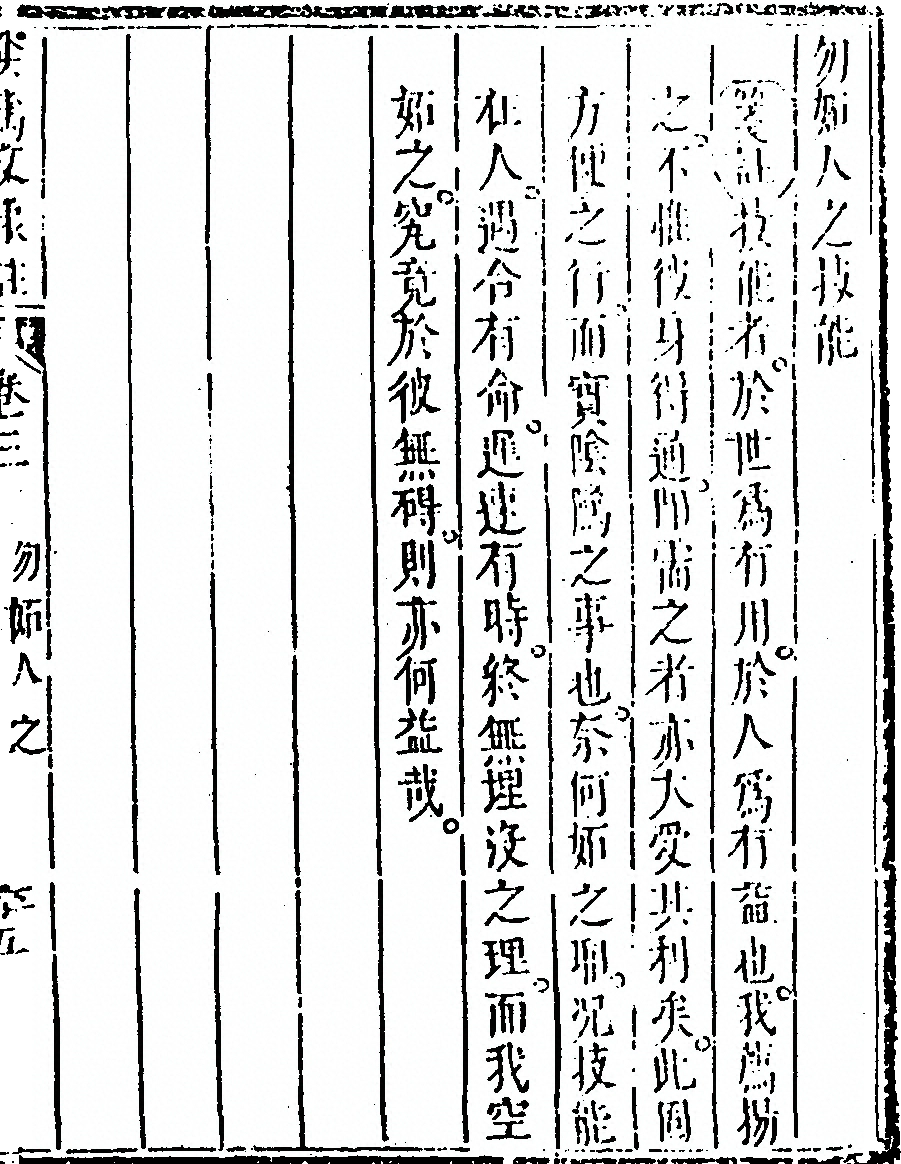 勿妬人之技能
箋註技能者於世爲有用於人爲有益也我薦揚
之不惟彼身得通即需之者亦大受其利矣此固
方便之行而實陰騭之事也奈何妬之耶況技能
在人遇合有命遲速有時終無埋沒之理而我空
妬之究竟於彼無礙則亦何益哉
文
註
卷三
勿妬人之
五